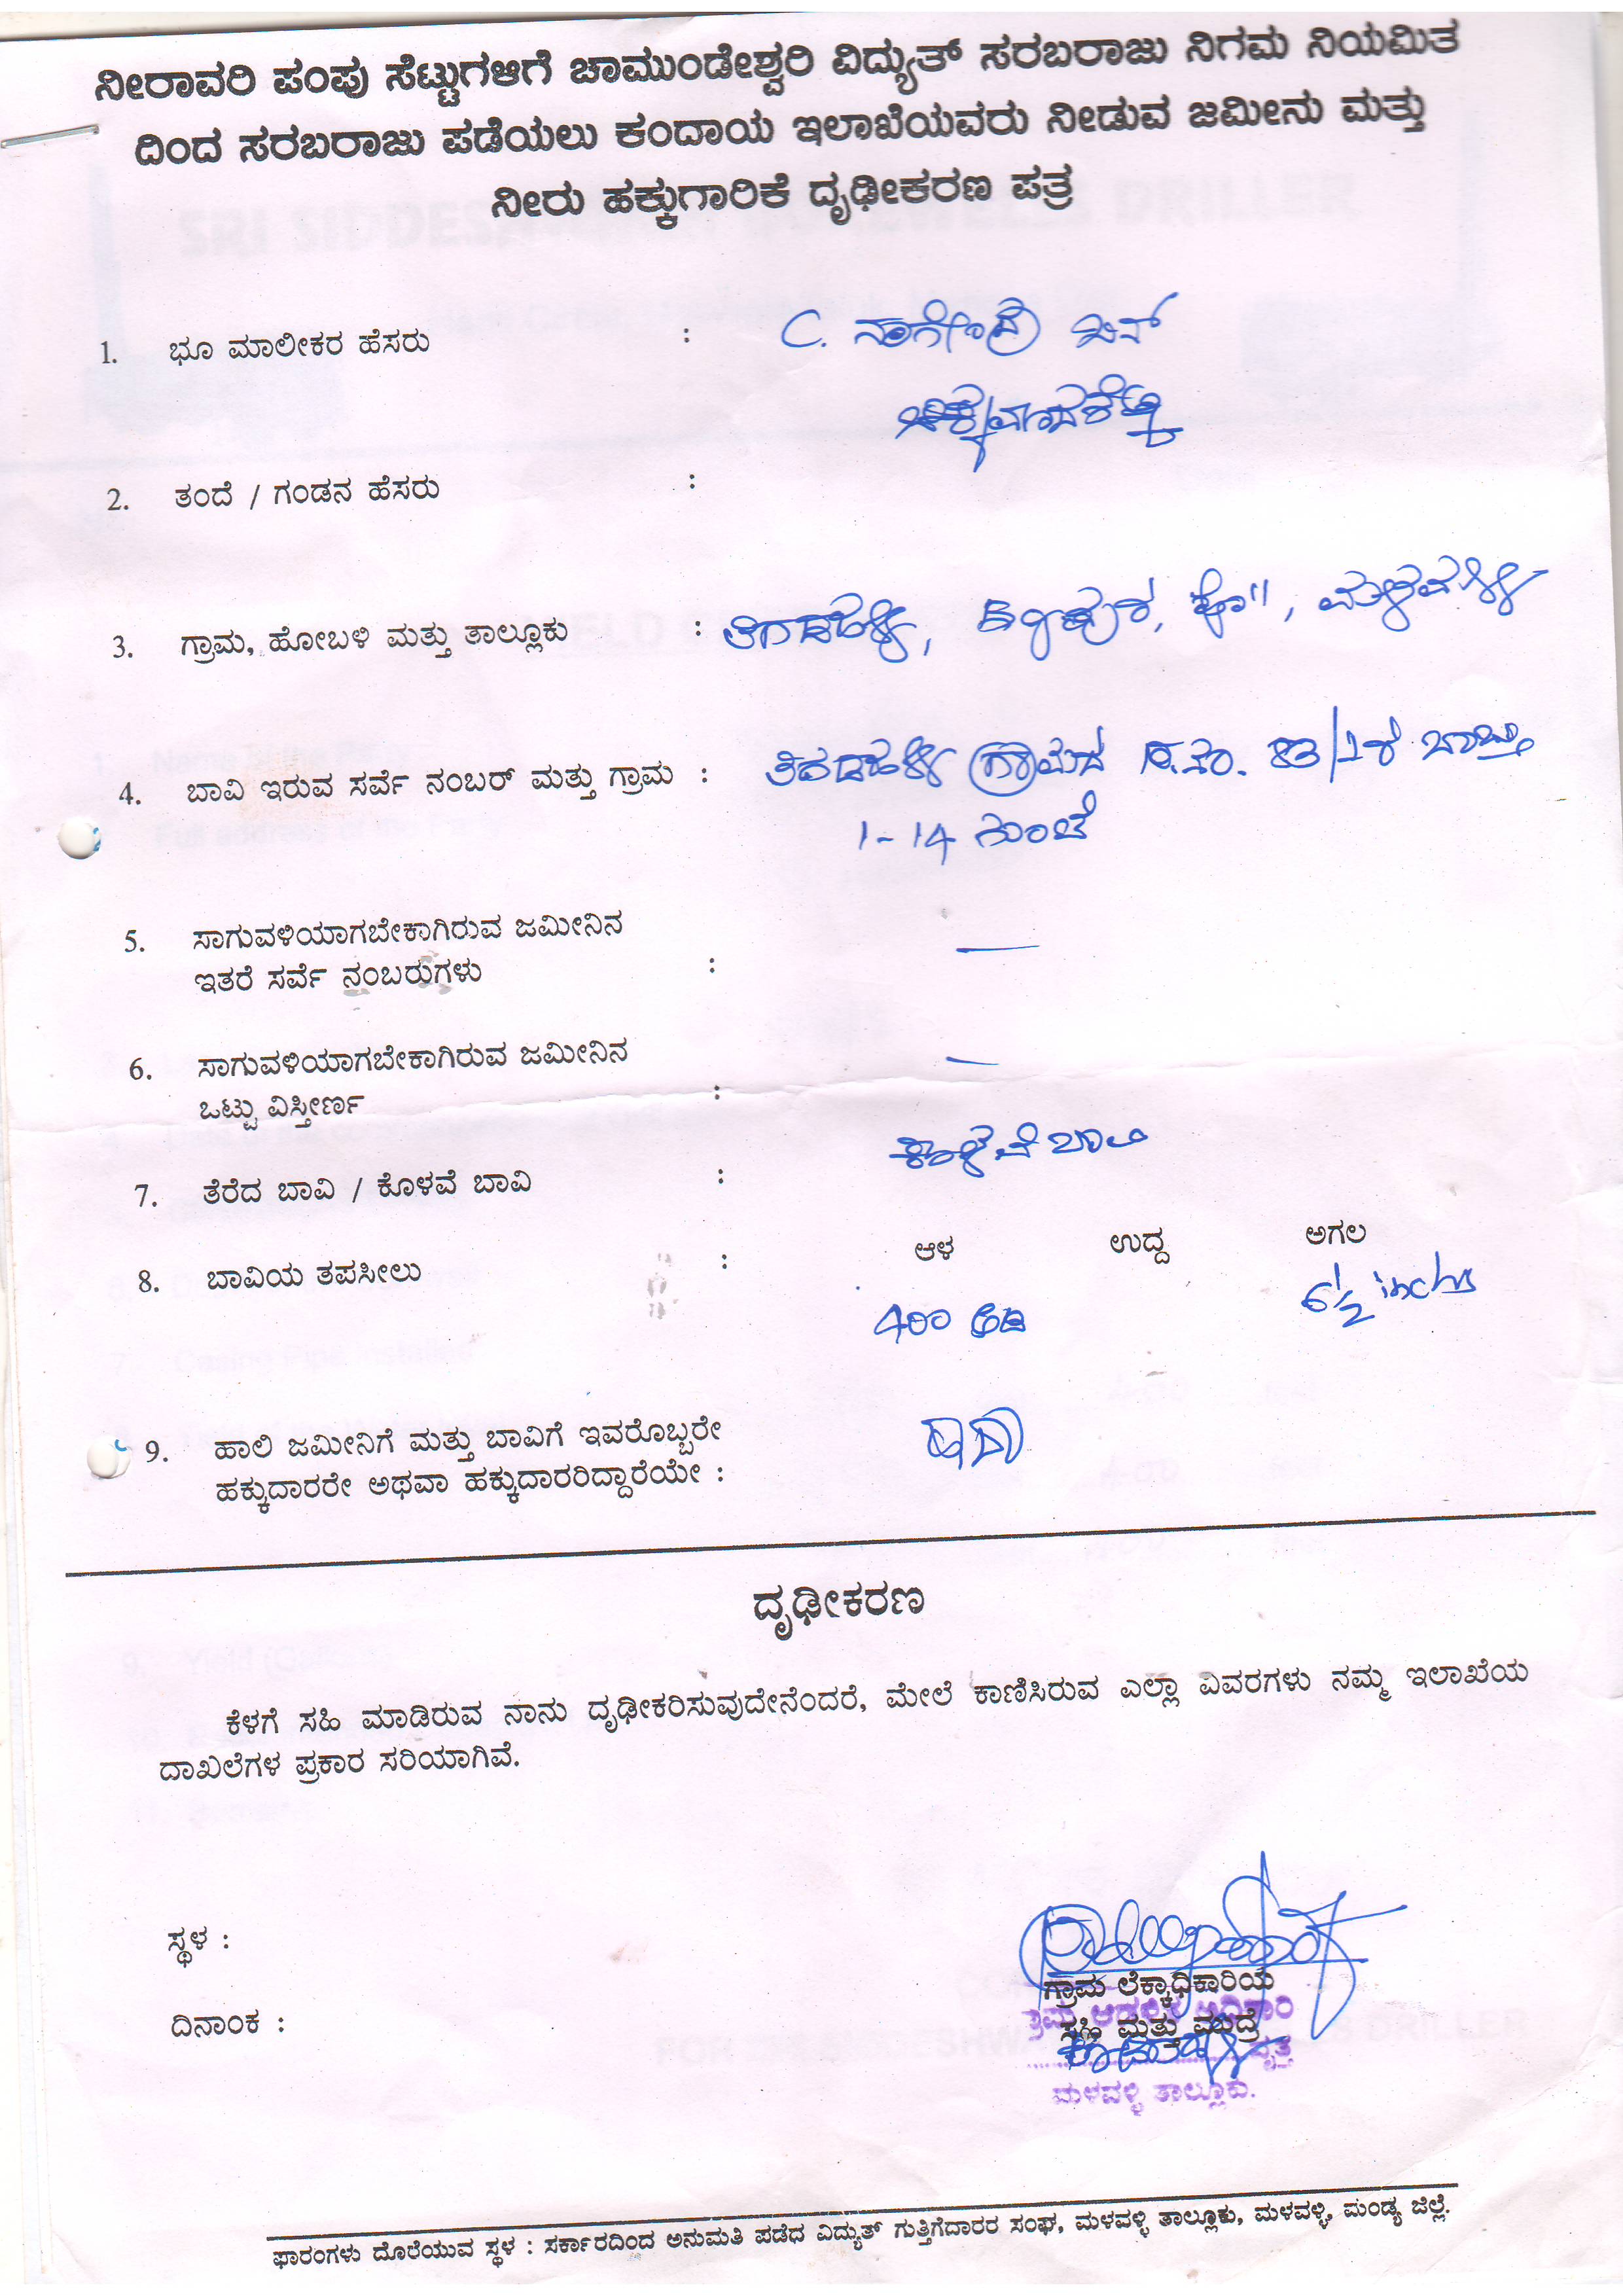 ನೀರಾವರಿ ಪಂಪು ಸೆಟ್ಟುಗಳಿಗೆ ಚಾಮುಂಡೇಶ್ವರಿ ವಿದ್ಯುತ್ ಸರಬರಾಜು ನಿಗಮ ನಿಯಮಿತ
ದಿಂದ ಸರಬರಾಜು ಪಡೆಯಲು ಕಂದಾಯ ಇಲಾಖೆಯವರು ನೀಡುವ ಜಮೀನು ಮತ್ತು
ನೀರು ಹಕ್ಕುಗಾರಿಕೆ ದೃಢೀಕರಣ ಪತ್ರ
1. ಭೂ ಮಾಲೀಕರ ಹೆಸರು : C.
2. ತಂದೆ / ಗಂಡನ ಹೆಸರು :
3. ಗ್ರಾಮ, ಹೋಬಳಿ ಮತ್ತು ತಾಲ್ಲೂಕು : ಮಳವಳ್ಳಿ
4. ಬಾವಿ ಇರುವ ಸರ್ವೆ ನಂಬರ್ ಮತ್ತು ಗ್ರಾಮ : ಗ್ರಾಮದ ಸ.ನಂ.
1-14 ಗುಂಟೆ
5. ಸಾಗುವಳಿಯಾಗಬೇಕಾಗಿರುವ ಜಮೀನಿನ
ಇತರೆ ಸರ್ವೆ ನಂಬರುಗಳು : —
6. ಸಾಗುವಳಿಯಾಗಬೇಕಾಗಿರುವ ಜಮೀನಿನ
ಒಟ್ಟು ವಿಸ್ತೀರ್ಣ : —
7. ತೆರೆದ ಬಾವಿ / ಕೊಳವೆ ಬಾವಿ : ಕೊಳವೆ ಬಾವಿ
8. ಬಾವಿಯ ತಪಸೀಲು : ಆಳ ಉದ್ದ ಅಗಲ
400 ಅಡಿ 6½ inchs
9. ಹಾಲಿ ಜಮೀನಿಗೆ ಮತ್ತು ಬಾವಿಗೆ ಇವರೊಬ್ಬರೇ
ಹಕ್ಕುದಾರರೇ ಅಥವಾ ಹಕ್ಕುದಾರರಿದ್ದಾರೆಯೇ :
ದೃಢೀಕರಣ
ಕೆಳಗೆ ಸಹಿ ಮಾಡಿರುವ ನಾನು ದೃಢೀಕರಿಸುವುದೇನೆಂದರೆ, ಮೇಲೆ ಕಾಣಿಸಿರುವ ಎಲ್ಲಾ ವಿವರಗಳು ನಮ್ಮ ಇಲಾಖೆಯ
ದಾಖಲೆಗಳ ಪ್ರಕಾರ ಸರಿಯಾಗಿವೆ.
ಸ್ಥಳ :
ದಿನಾಂಕ :
ಗ್ರಾಮ ಲೆಕ್ಕಾಧಿಕಾರಿಯ
ಸಹಿ ಮತ್ತು ಮುದ್ರೆ
ವೃತ್ತ
ಮಳವಳ್ಳಿ ತಾಲ್ಲೂಕು.
ಫಾರಂಗಳು ದೊರೆಯುವ ಸ್ಥಳ : ಸರ್ಕಾರದಿಂದ ಅನುಮತಿ ಪಡೆದ ವಿದ್ಯುತ್ ಗುತ್ತಿಗೆದಾರರ ಸಂಘ, ಮಳವಳ್ಳಿ ತಾಲ್ಲೂಕು, ಮಳವಳ್ಳಿ, ಮಂಡ್ಯ ಜಿಲ್ಲೆ.